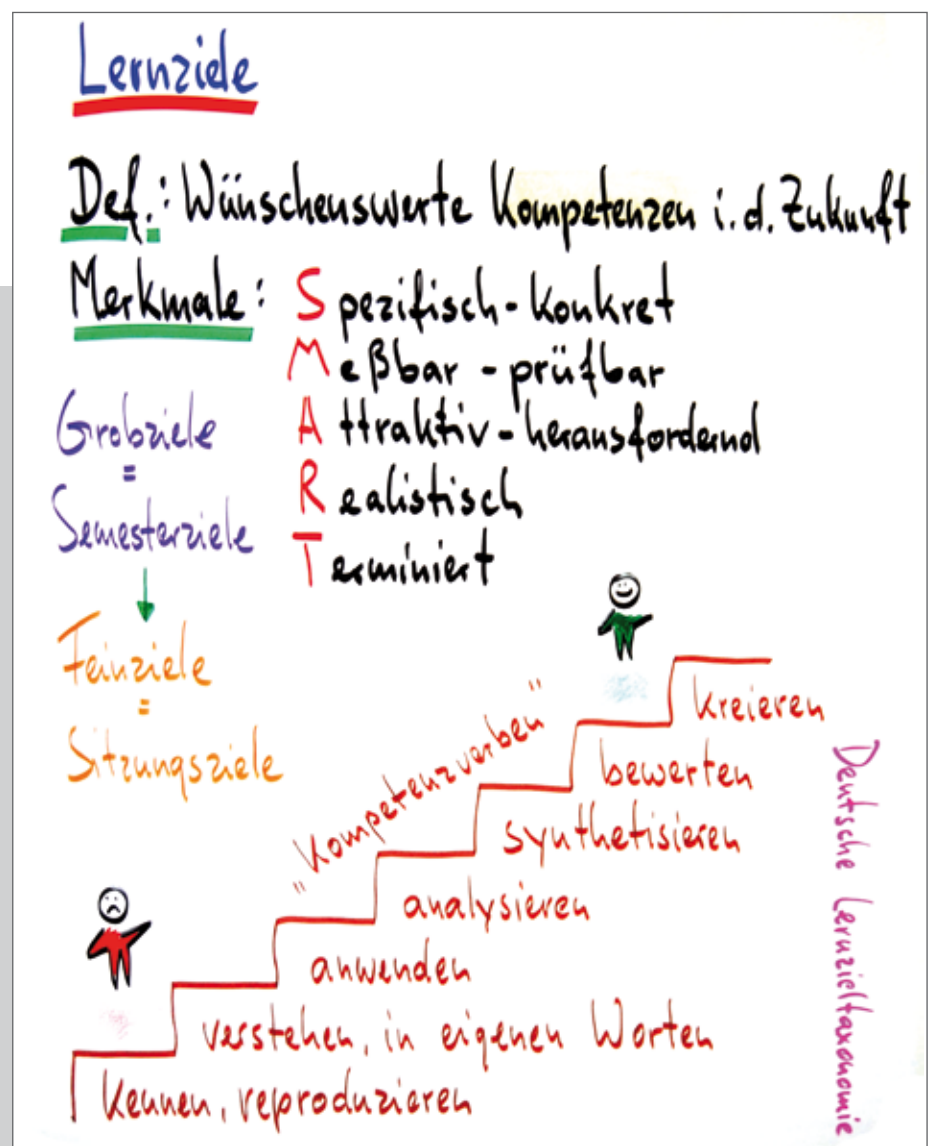 Lernziele
Def.: Wünschenswerte Kompetenzen i.d. Zukunft
Merkmale: Spezifisch-konkret
Meßbar - prüfbar
Attraktiv-herausfordernd
Realistisch
Terminiert
Grobziele
=
Semesterziele
Feinziele
=
Sitzungsziele
"Kompetenzverben"
kreieren
bewerten
synthetisieren
analysieren
anwenden
verstehen, in eigenen Worten
kennen, reproduzieren
Deutsche Lernzieltaxonomie